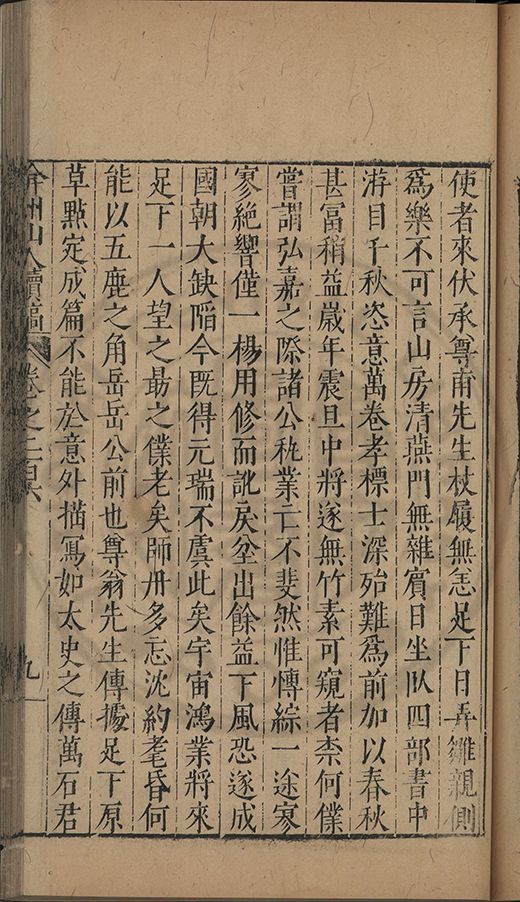 使者來伏承尊甫先生杖履無恙足下日弄雛親側
爲樂不可言山房清燕門無雜賓日坐臥四部書中
游目千秋恣意萬卷孝標士深殆難爲前加以春秋
甚富稍益歲年震旦中將遂無竹素可窺者柰何僕
嘗謂弘嘉之際諸公秇業亡不斐然惟博綜一途寥
寥絶響僅一楊用修而訛戾坌出餘益下風恐遂成
國朝大缺陷今既得元瑞不虞此矣宇宙鴻業將來
足下一人望之最之僕老矣師丹多忘沈約耄昏何
能以五鹿之角岳岳公前也尊翁先生傳據足下原
草㸃定成篇不能於意外描寫如太史之傳萬石君
弇州山人續稿 卷之二百六 九